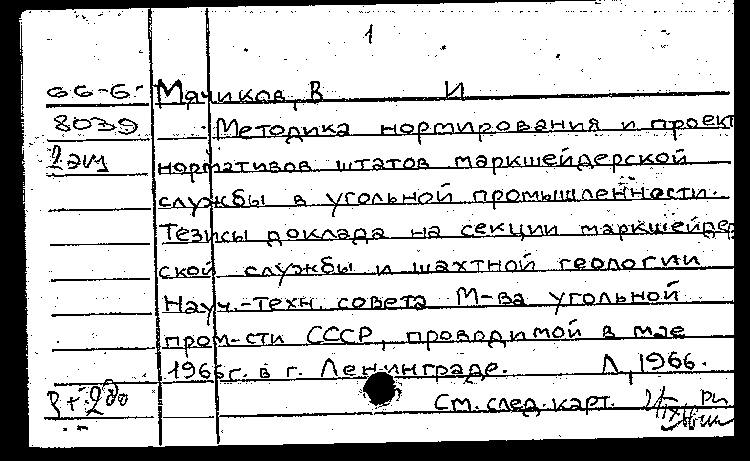 1
66-6- Мячиков, В И
8039 Методика нормирования и проект
2 экз нормативов штатов маркшейдерской
службы в угольной промышленности.
Тезисы доклада на секции маркшейдер
ской службы и шахтной геологии
Науч.-техн. совета М-ва угольной
пром-сти СССР, проводимой в мае
1966г. в г. Ленинграде. Л, 1966.
См. след. карт.